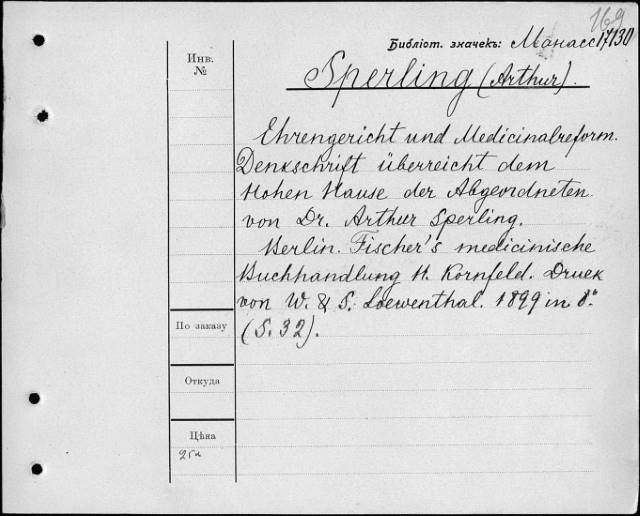 169
Библіот. значекъ: Манасс 17130
Инв.
№
Sperling (Arthur).
Ehrengericht und Medicinalreform.
Denkschrift überreicht dem
Hohen Hause der Abgeordneten
von Dr. Arthur Sperling.
Berlin. Fischer's medicinische
Buchhandlung H. Kornfeld. Druck
von W. & S. Loewenthal. 1899 in 8°
(S. 32).
По заказу
Откуда
Цѣна